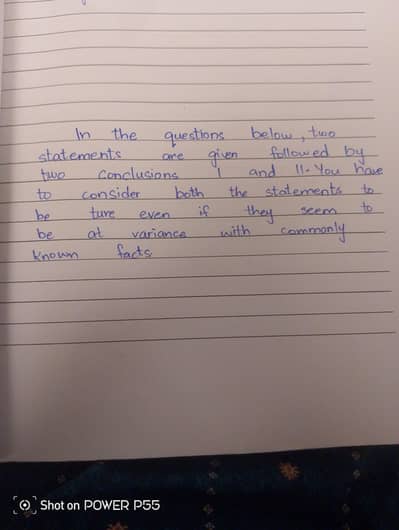 In the questions below, two
statements are given followed by
two conclusions I and II. You have
to consider both the statements to
be ture even if they seem to
be at variance with commonly
known facts
Shot on POWER P55